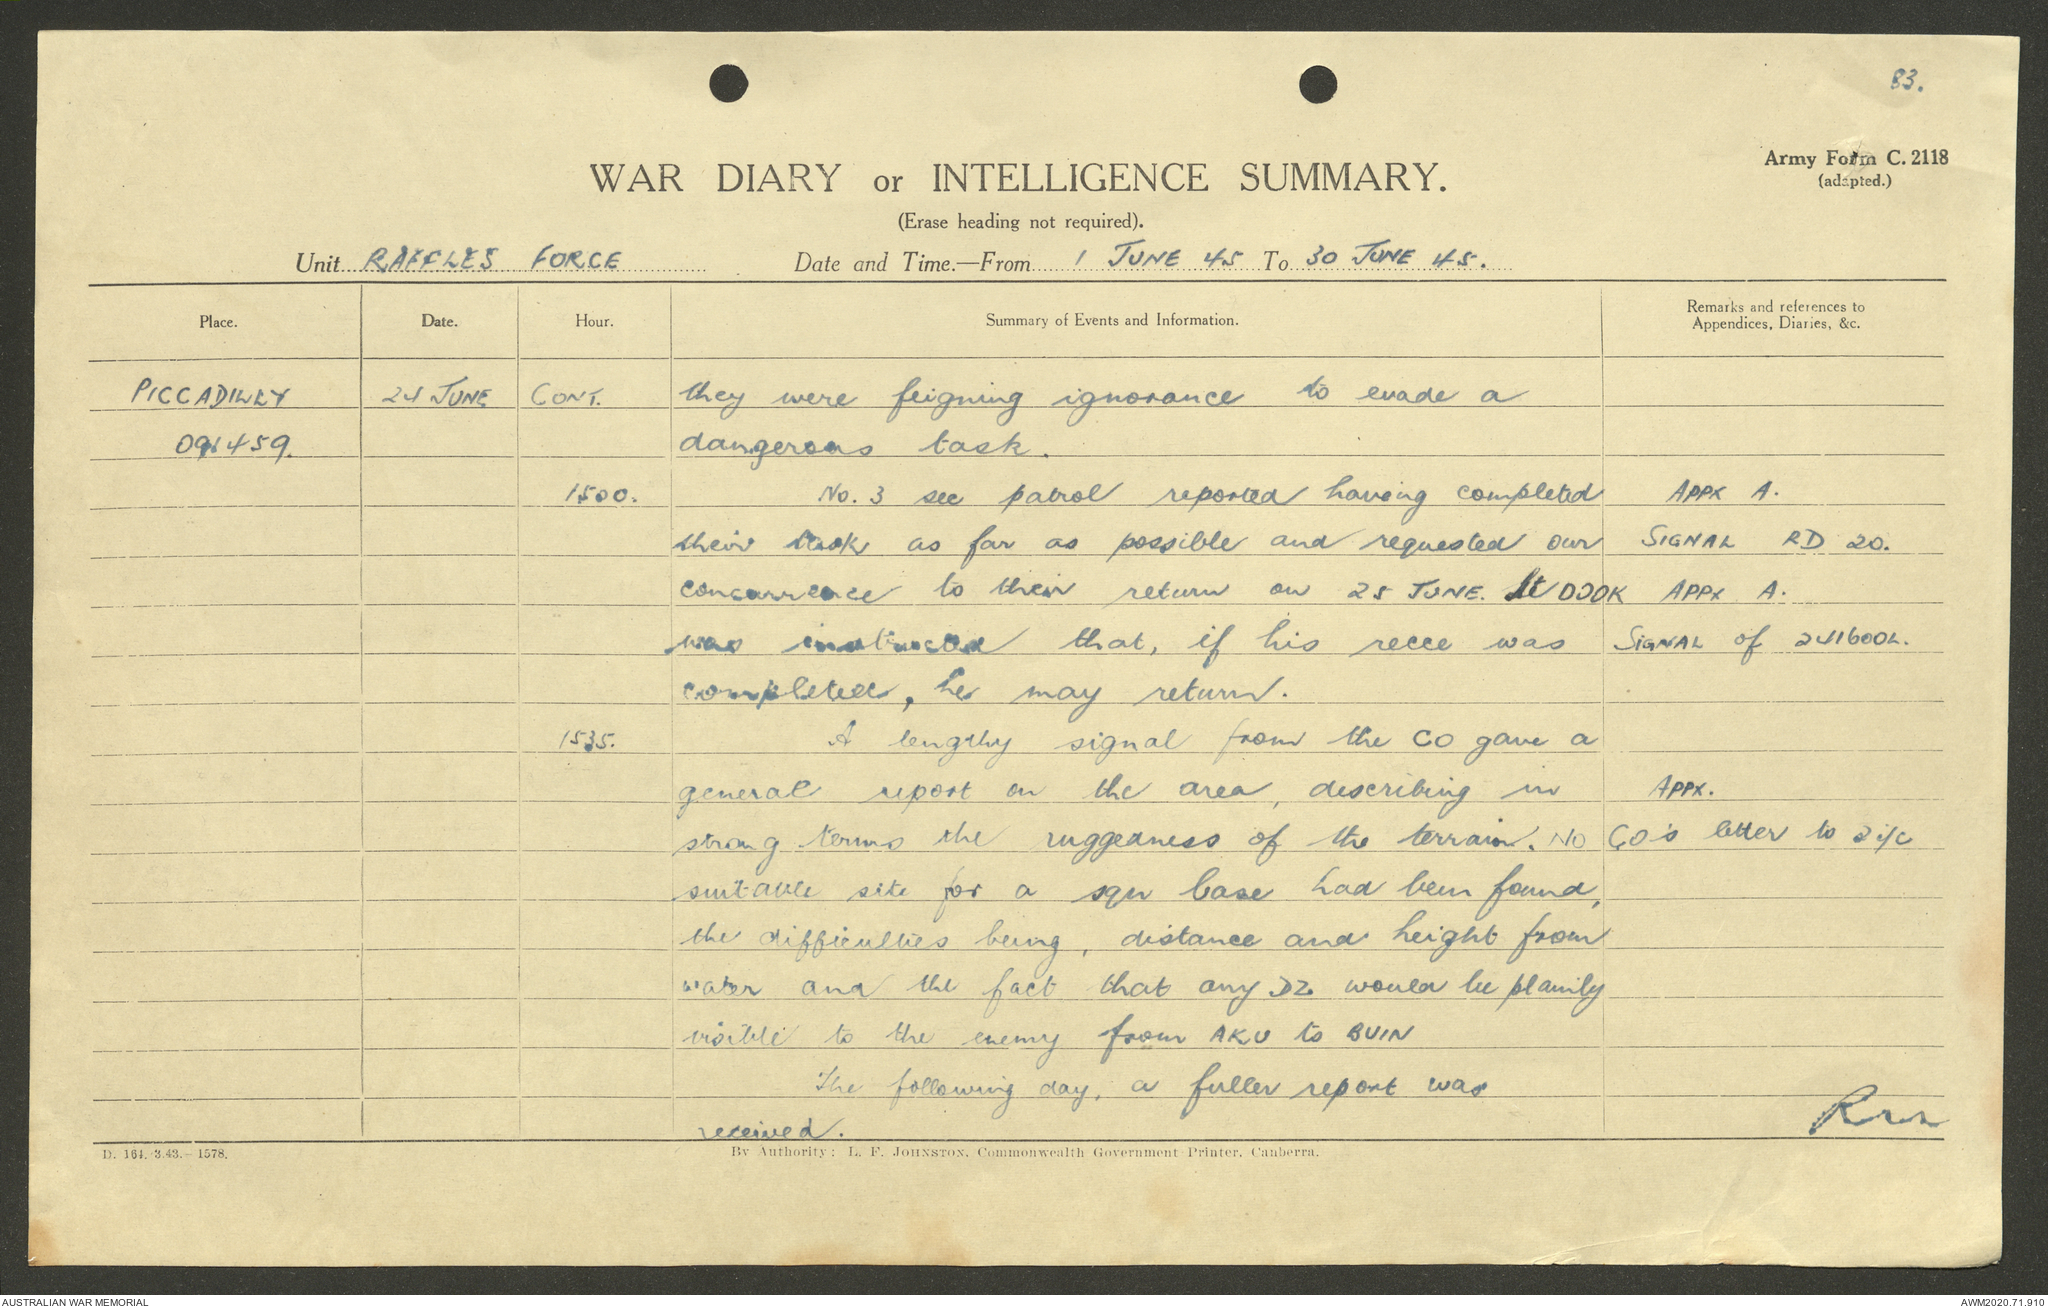 83.
Army Form C. 2118
(adapted.)
WAR DIARY or INTELLIGENCE SUMMARY.
(Erase heading not required).
Unit RAFFLES FORCE Date and Time.—From 1 JUNE 45 To 30 JUNE 45.
Place. Date. Hour. Summary of Events and Information. Remarks and references to Appendices, Diaries, &c.
PICCADILLY 24 JUNE CONT. they were feigning ignorance to evade a
091459. dangerous task.
1500. No. 3 sec patrol reported having completed APPX A.
their task as far as possible and requested our SIGNAL RD 20.
concurrence to their return on 25 JUNE. Lt APPX A.
was instructed that, if his recce was SIGNAL of 241600L.
completed, he may return.
1535. A lengthy signal from the CO gave a
general report on the area, describing in APPX.
strong terms the ruggedness of the terrain. NO CO's letter to 2i/c
suitable site for a sqn base had been found,
the difficulties being, distance and height from
water and the fact that any DZ would be plainly
visible to the enemy from AKU to BUIN
The following day, a fuller report was
received.
D. 164. 3.43.—1578. By Authority: L. F. JOHNSTON, Commonwealth Government Printer, Canberra.
AUSTRALIAN WAR MEMORIAL AWM2020.71.910